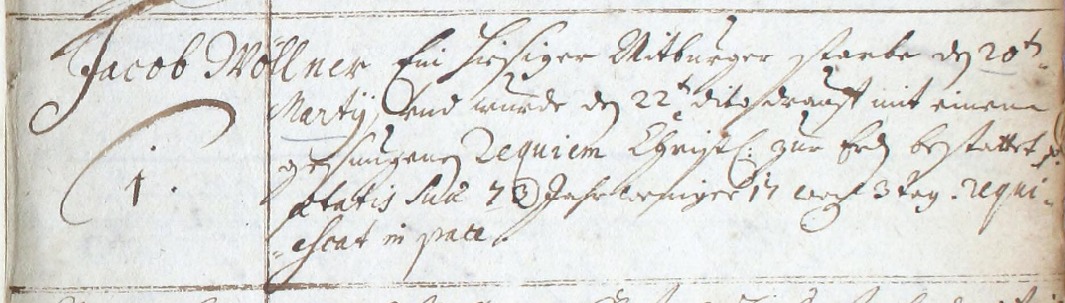 Jacob Wöllner Ein hiesiger Mitburger starbe den 20ten
Martij, Vnd wurde den 22t dito drauff mit einem
gesungenen Requiem Christl: zur Erden bestattet
1.
ætatis suæ 73 Jahr weniger 17 woch 3 tag. requi=
=escat in pace.